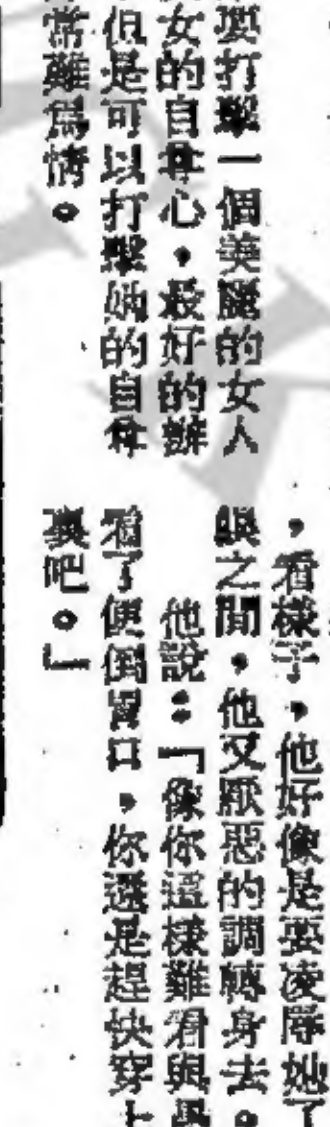 要打擊一個美麗的女人
女的自尊心，最好的辦
但是可以打擊她的自尊
常難爲情。
，看樣子，他好像是要凌辱她了
眼之間，他又厭惡的調轉身去。
他說：「像你這樣難看與
看了便倒胃口，你還是趕快穿上
裳吧。」